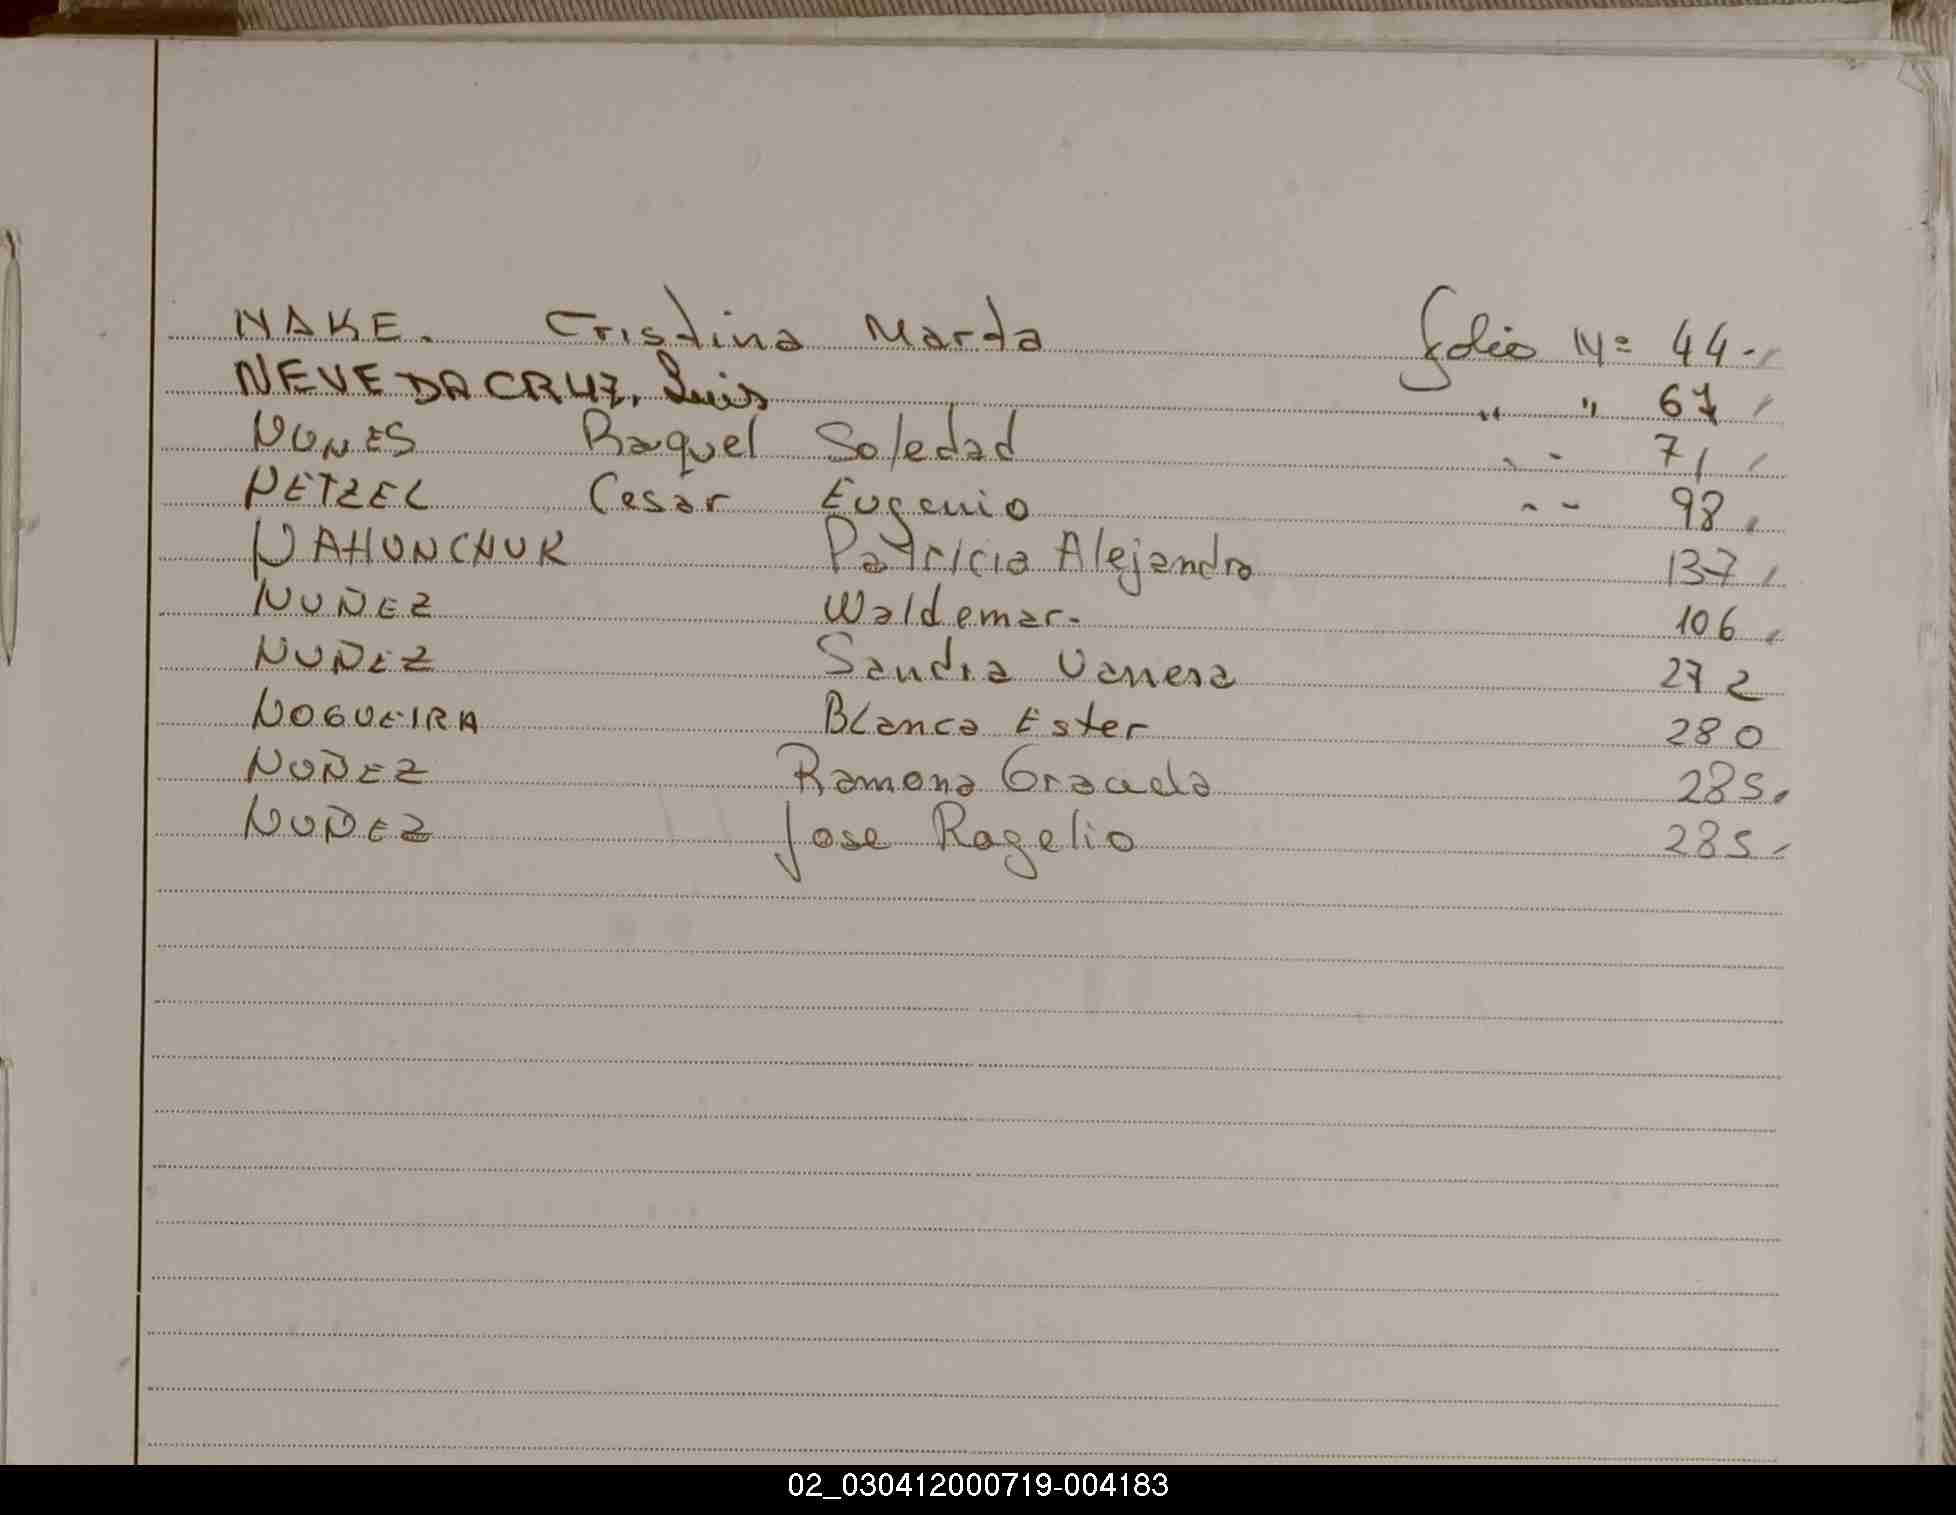 NAKE. Cristina Marta folio N= 44.
NEVE DA CRUZ, Luis " " 67
NUNES Raquel Soledad " " 71
NETZEL Cesar Eugenio " " 98
NAHUNCHUK Patricia Alejandra 137
NUÑEZ Waldemar. 106
NUÑEZ Sandra Vanesa 272
NOGUEIRA Blanca Ester 280
NUÑEZ Ramona Graciela 285.
NUÑEZ Jose Rogelio 285.
02_030412000719-004183